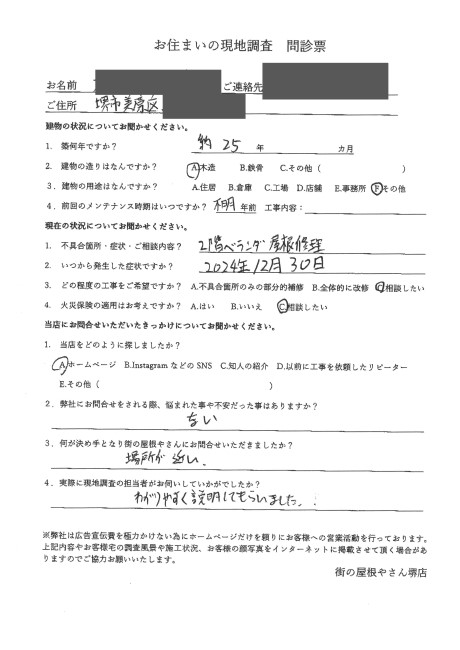 お住まいの現地調査 問診票
お名前 ご連絡先
ご住所 堺市美原区
建物の状況についてお聞かせください。
1. 築何年ですか? 約 25 年 カ月
2. 建物の造りはなんですか? A.木造 B.鉄骨 C.その他( )
3. 建物の用途はなんですか? A.住居 B.倉庫 C.工場 D.店舗 E.事務所 F.その他
4. 前回のメンテナンス時期はいつですか? 年前 工事内容:
現在の状況についてお聞かせください。
1. 不具合箇所・症状・ご相談内容? 2階ベランダ屋根修理
2. いつから発生した症状ですか? 2024年12月30日
3. どの程度の工事をご希望ですか? A.不具合箇所のみの部分的補修 B.全体的に改修 C.相談したい
4. 火災保険の適用はお考えですか? A.はい B.いいえ C.相談したい
当店にお問合せいただいたきっかけについてお聞かせください
1. 当店をどのように探しましたか?
A.ホームページ B.Instagram などの SNS C.知人の紹介 D.以前に工事を依頼したリピーター
E.その他( )
2. 弊社にお問合せをされる際、悩まれた事や不安だった事はありますか?
ない
3. 何が決め手となり街の屋根やさんにお問合せいただきましたか?
場所が近い.
4. 実際に現地調査の担当者がお伺いしていかがでしたか?
わかりやすく説明してもらいました.
※弊社は広告宣伝費を極力かけない為にホームページだけを頼りにお客様への営業活動を行っております。
上記内容やお客様宅の調査風景や施工状況、お客様の顔写真をインターネットに掲載させて頂く場合があ
りますのでご協力お願いいたします。
街の屋根やさん堺店